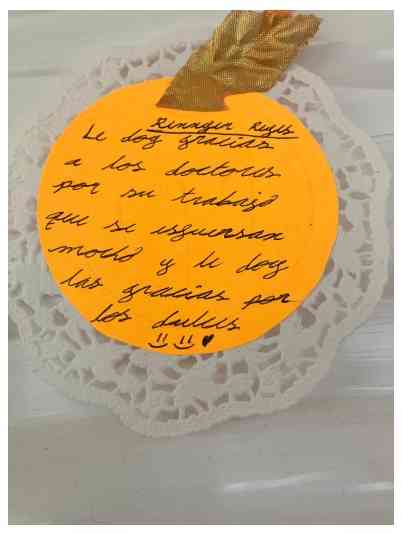 Reyes
Le doy gracias
a los doctores
por su trabajo
que se esfuersan
mucho y le doy
las gracias por
los dulces